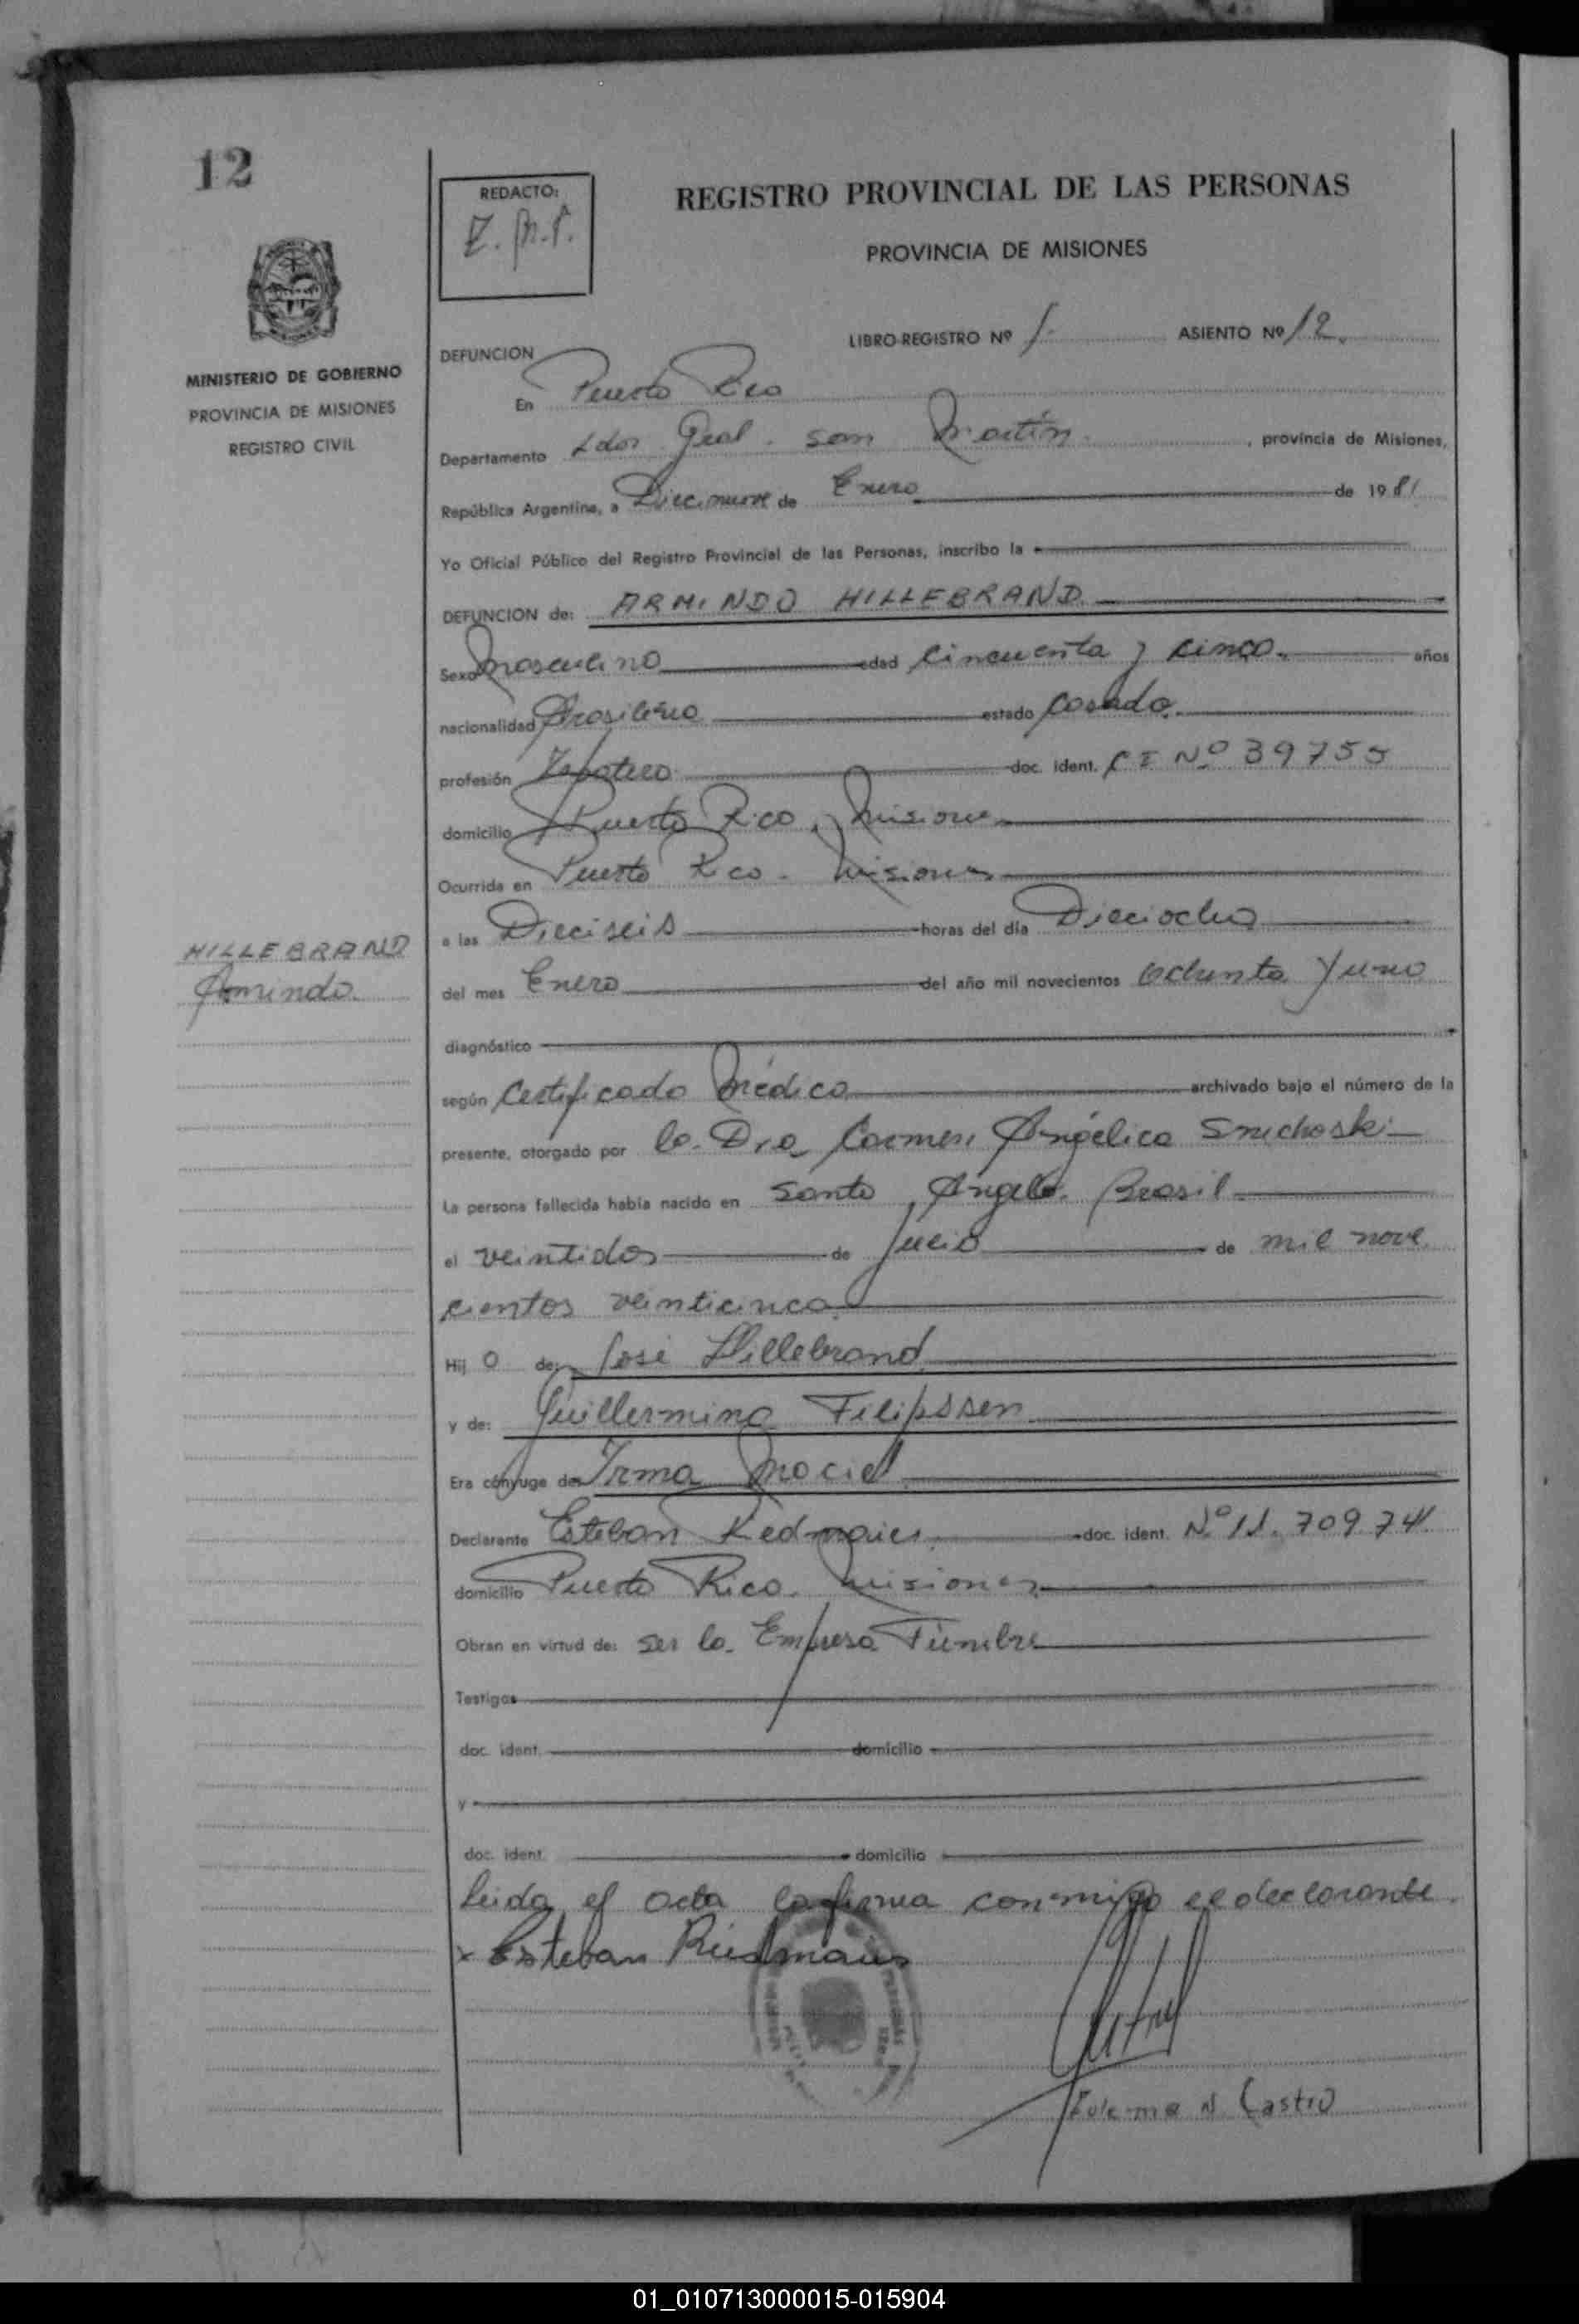 12
REDACTO:
Z. M. P.
REGISTRO PROVINCIAL DE LAS PERSONAS
PROVINCIA DE MISIONES
MINISTERIO DE GOBIERNO
PROVINCIA DE MISIONES
REGISTRO CIVIL
LIBRO-REGISTRO Nº 1. ASIENTO Nº 12.
DEFUNCION
En Puerto Rico
Departamento Ldor Gral. San Martín. , provincia de Misiones,
República Argentina, a Diecinueve de Enero de 1981
Yo Oficial Público del Registro Provincial de las Personas, inscribo la
DEFUNCION de: ARMINDO HILLEBRAND.
Sexo Masculino edad Cincuenta y Cinco. años
nacionalidad Brasilero estado Casado.
profesión Zapatero doc. ident. CI Nº 39755
domicilio Puerto Rico, Misiones
Ocurrida en Puerto Rico. Misiones
a las Dieciseis horas del día Dieciocho
HILLEBRAND
Armindo.
del mes Enero del año mil novecientos Ochenta y uno
diagnóstico
según Certificado Médico archivado bajo el número de la
presente, otorgado por la Dra. Carmen Angélica
La persona fallecida había nacido en Santo Angelo. Brasil
el veintidos de Julio de mil nove
cientos veinticinco.
Hij o de: José Hillebrand
y de: Guillermina Filipssen
Era cónyuge de: Irma Maciel
Declarante Esteban doc. ident. Nº 11. 709 741.
domicilio Puerto Rico. Misiones
Obran en virtud de: ser la Empresa Fúnebre
Testigos
doc. ident. domicilio
y
doc. ident. domicilio
Leida el acta la firma conmigo el declarante.
x Esteban
N. Castro
01_010713000015-015904